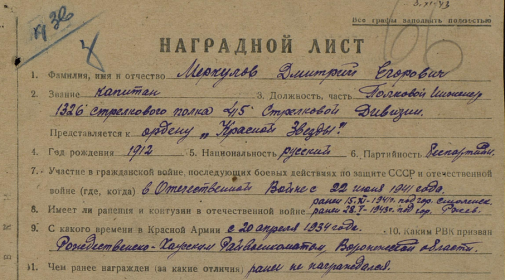 Все графы заполнить полностью
НАГРАДНОЙ ЛИСТ
1. Фамилия, имя и отчество Меркулов Дмитрий Егорович
2. Звание капитан 3. Должность, часть Полковой Инженер
1326 стрелкового полка 415 Стрелковой Дивизии.
Представляется к ордену „Красной Звезды".
4. Год рождения 1912 5. Национальность русский 6. Партийность Беспартийн.
7. Участие в гражданской войне, последующих боевых действиях по защите СССР и отечественной
войне (где, когда) в Отечественной Войне с 22 июня 1941 года.
ранен 15.XI-1941г. под гор.
8. Имеет ли ранения и контузии в отечественной войне ранен 28.I-1943г. под гор. Ржев.
9. С какого времени в Красной Армии с 20 апреля 1934 года. 10. Каким РВК призван
Рождественско-Хавским Райвоенкоматом, Воронежской области.
11. Чем ранее награжден (за какие отличия) ранее не награждался.